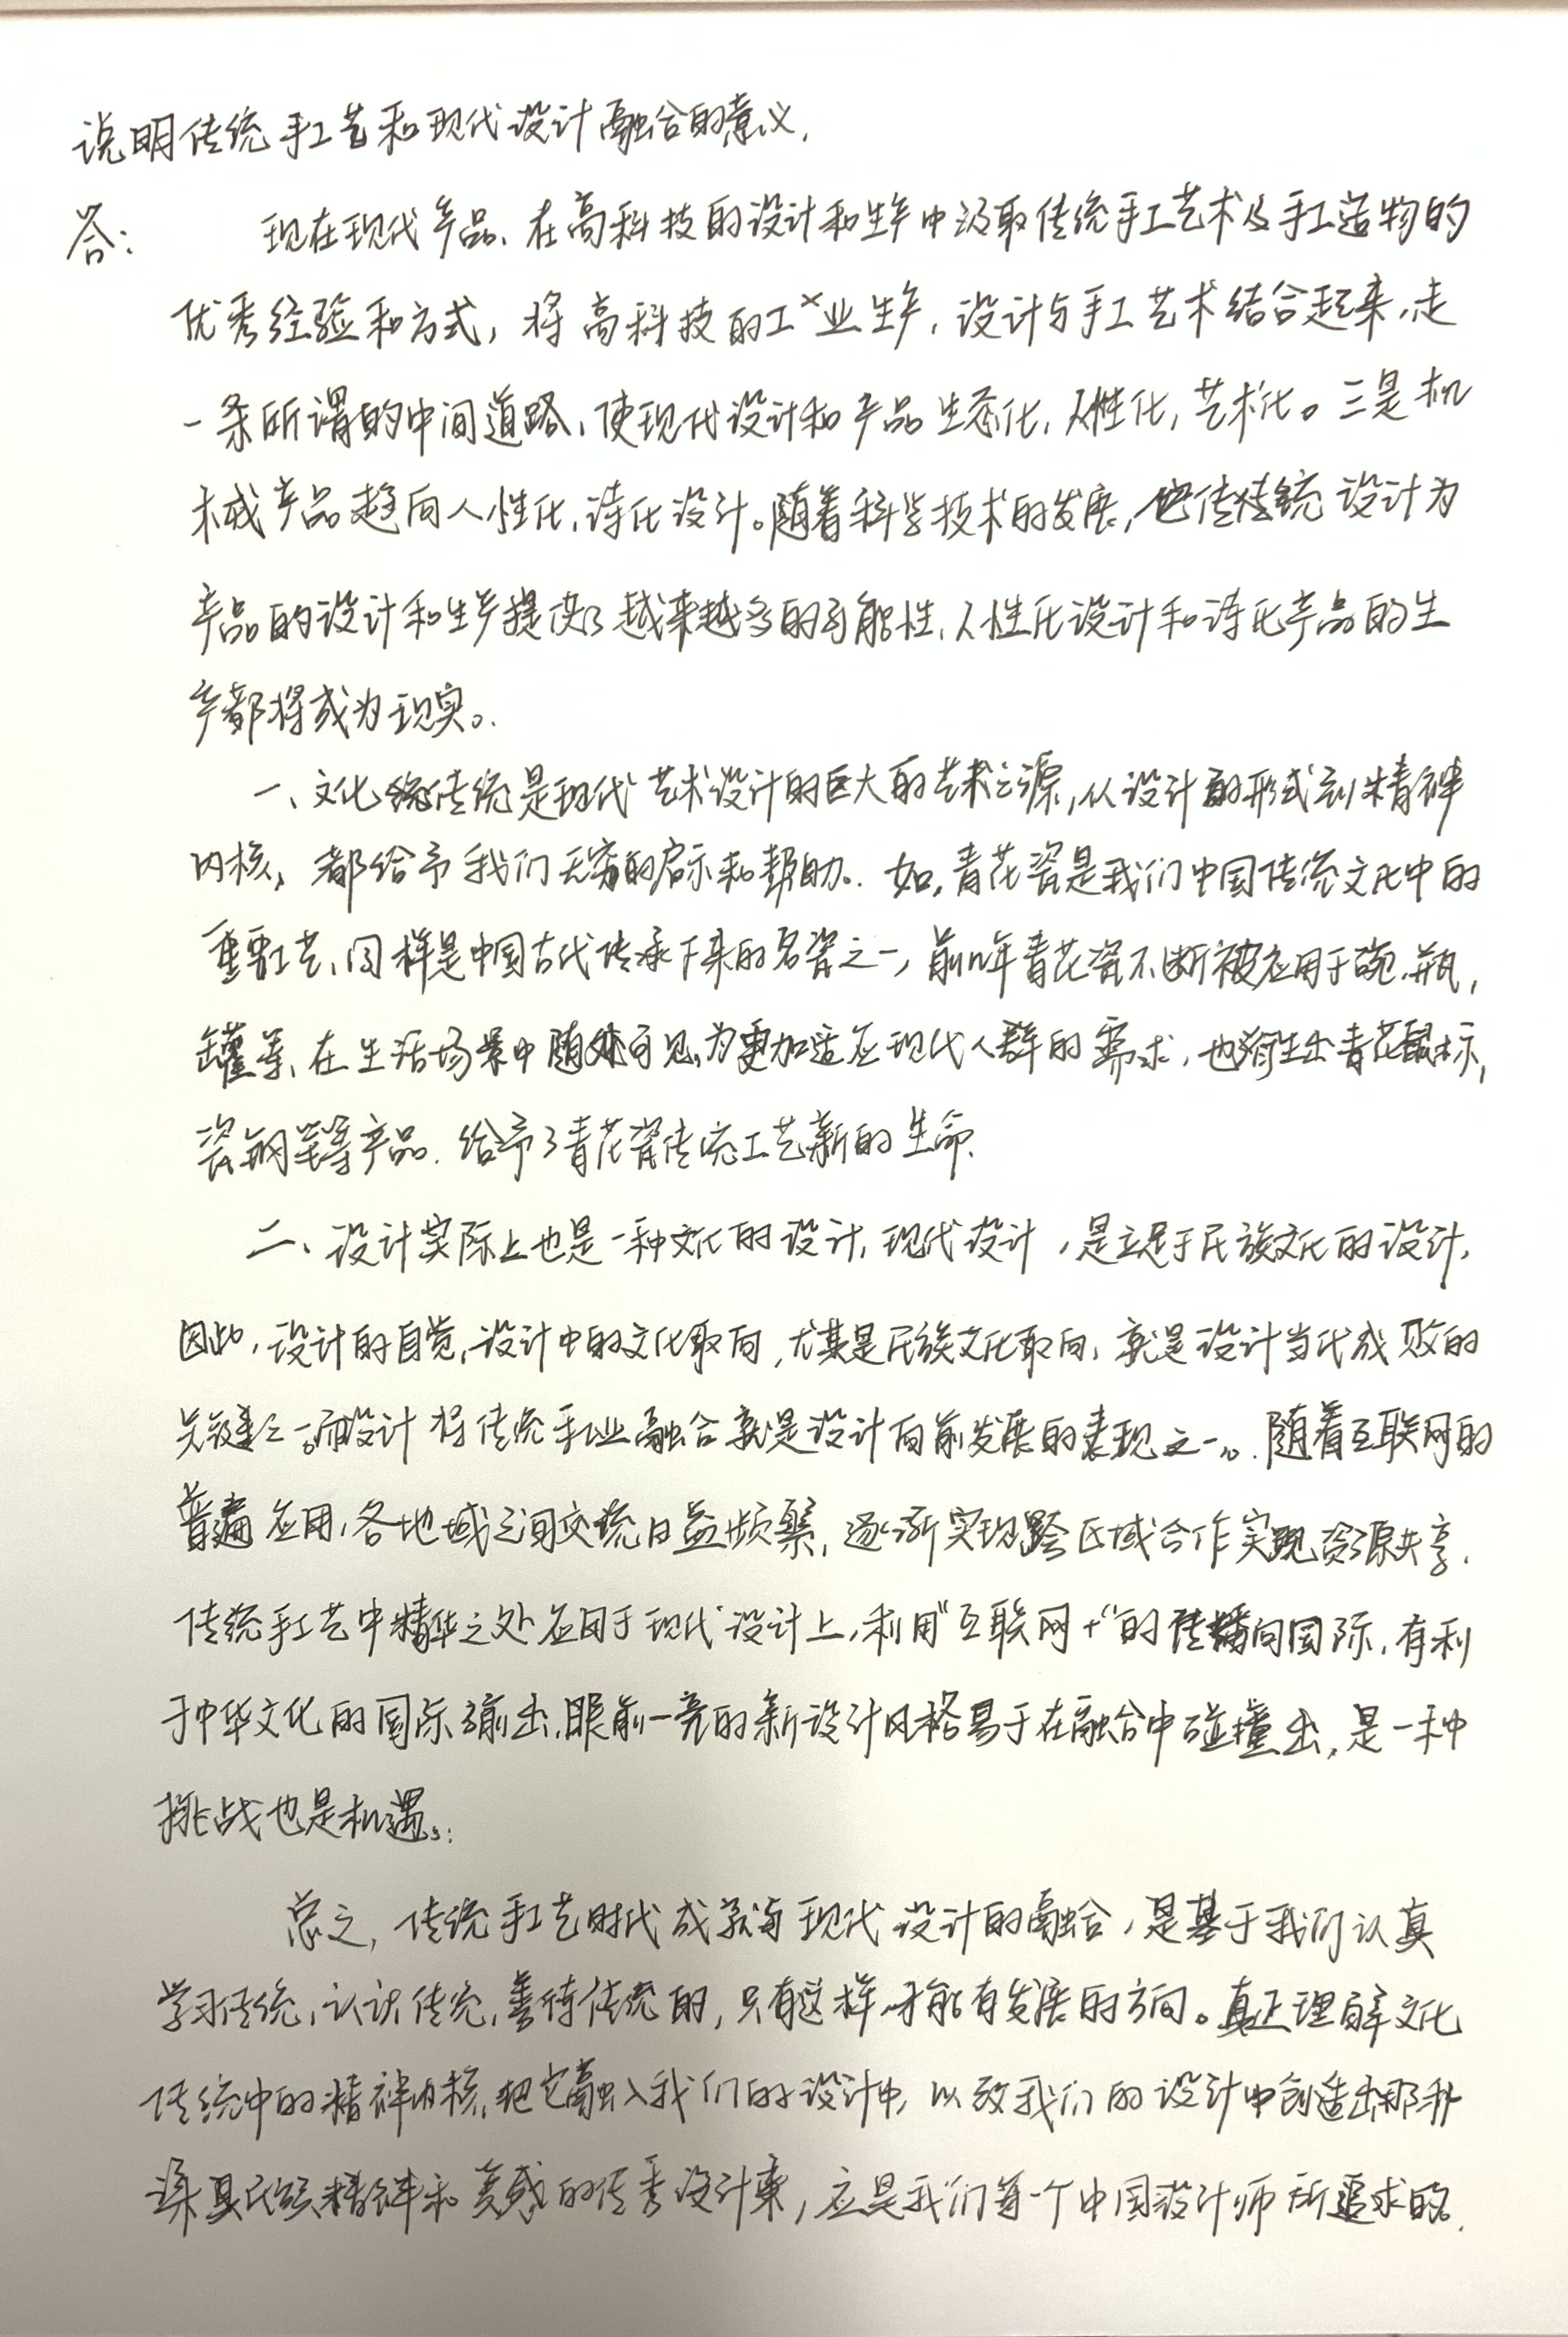 说明传统手工艺和现代设计融合的意义.
答: 现在现代产品、在高科技的设计和生产中汲取传统手工艺术及手工造物的
优秀经验和方式, 将高科技的工业生产, 设计与手工艺术结合起来, 走
一条所谓的中间道路, 使现代设计和产品生态化, 人性化, 艺术化。三是机
械产品趋向人性化, 诗化设计。随着科学技术的发展, 传统设计为
产品的设计和生产提供了越来越多的可能性, 人性化设计和诗化产品的生
产都将成为现实。
一、文化传统是现代艺术设计的巨大的艺术之源, 从设计的形式到精神
内核, 都给予我们无穷的启示和帮助. 如, 青花瓷是我们中国传统文化中的
重要工艺, 同样是中国古代传承下来的名瓷之一, 前几年青花瓷不断被应用于碗、瓶,
罐等, 在生活场景中随处可见, 为更加适应现代人群的需求, 也衍生出青花鼠标,
瓷钢笔等产品. 给予了青花瓷传统工艺新的生命.
二、设计实际上也是一种文化的设计, 现代设计, 是立足于民族文化的设计,
因此, 设计的自觉, 设计中的文化取向, 尤其是民族文化取向, 就是设计当代成败的
关键之一。而设计将传统手工业融合就是设计向前发展的表现之一。随着互联网的
普遍应用, 各地域之间交流日益频繁, 逐渐实现跨区域合作实现资源共享.
传统手工艺中精华之处应用于现代设计上, 利用“互联网+”的传播向国际, 有利
于中华文化的国际输出, 眼前一亮的新设计风格易于在融合中碰撞出, 是一种
挑战也是机遇。
总之, 传统手工艺时代成就与现代设计的融合, 是基于我们认真
学习传统, 认识传统, 善待传统的, 只有这样, 才能有发展的方向。真正理解文化
传统中的精神内核, 把它融入我们的设计中, 以致我们的设计中创造出那种
深具民族精神和美感的优秀设计来, 应是我们每一个中国设计师所追求的.